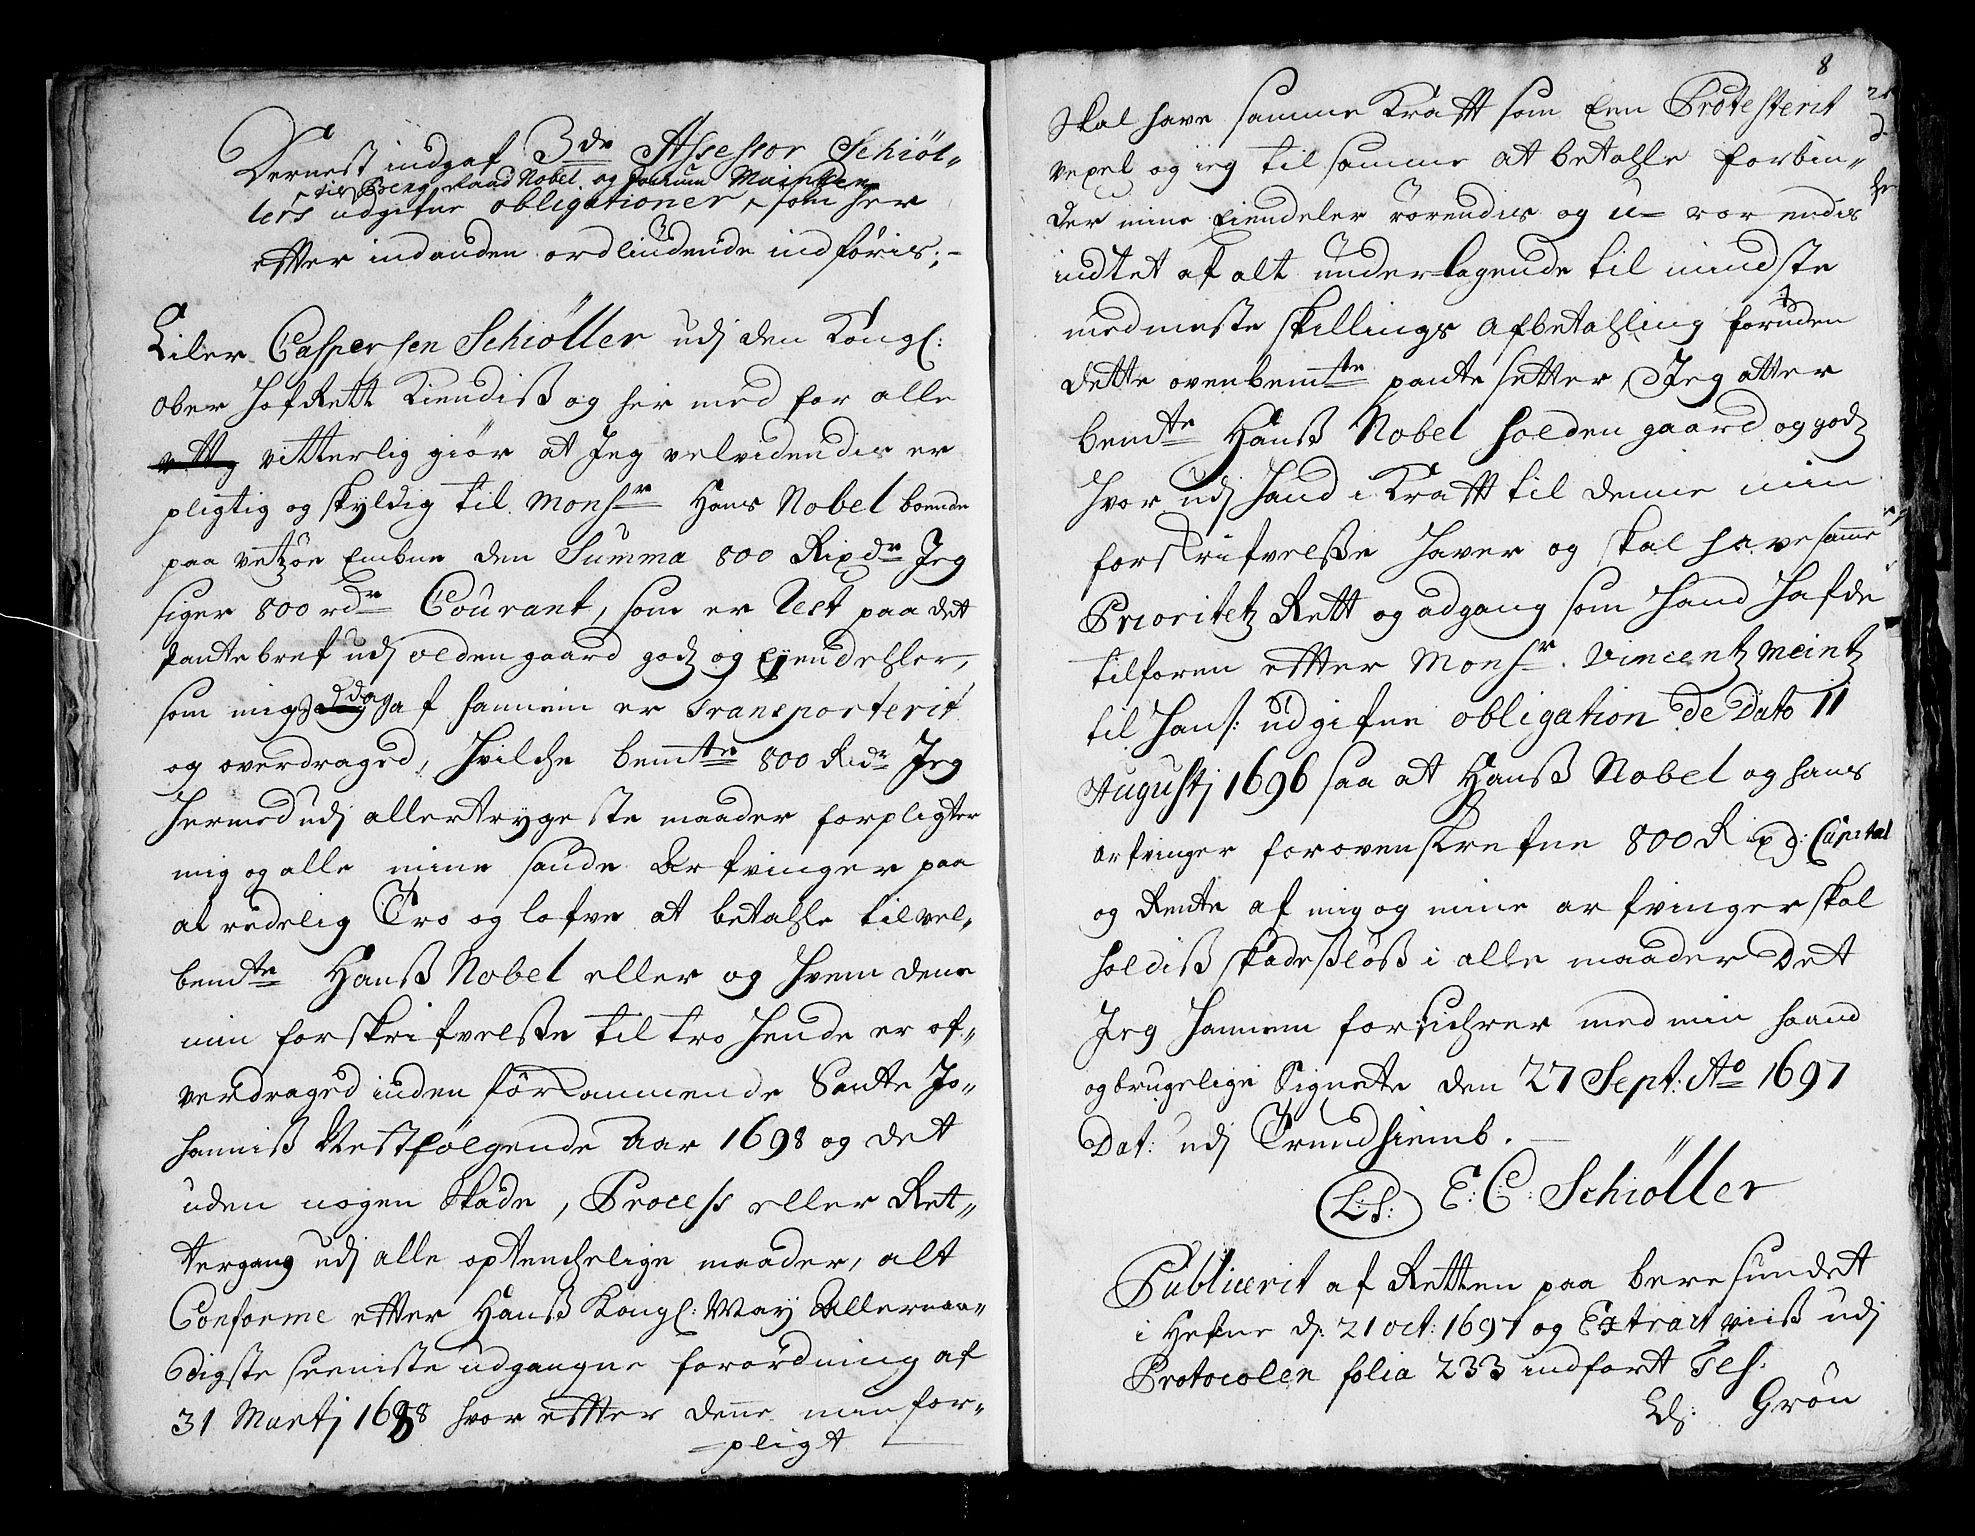 Dernest indgaf 3de Assessor Schiöl„
til Cancg. Raad Nobel og Jochum Meintzen
lers udgifne obligationer, som her
efter indanden ordliudende indföris;-
Eiler Caspersen Schiöller udj den Kongl:
Ober Hof Rett Kiendiß og her med for alle
vitterlig giör at Jeg velvidendis er
pligtig og skyldig til Monsr Hans Nobel boende
paa vetzöe Embne den Summa 800 Rixdr Jeg
siger 800 rdr Courant, som er Rest paa det
Pantebref udj olden gaard godz og Eyendehler,
som mig Jdag af hannem er Transporterit
og overdraged, Hvilche bemte 800 Rdr Jeg
Hermed udj allertrygeste maader forpligter
mig og alle mine sande Arfvinger paa
al redelig Tro og lofve at betahle til vel„
bemte Hanß Nobel eller og Hvem dene
min forskrifvelße til tro Hende er of„
verdraged inden förkommende Sante Jo„
hanniß Nestfölgende Aar 1698 og det
uden nogen Skade, Process eller Ret„
tergang udj alle optenchelige maader, alt
Conforme efter Hanß Kongl: May Allernaa„
digste seeniste udgangne forordning af
31 Martj 1688 hvor efter denne min for„
pligt
8
Skal have samme Krafft som Een Protesterit
vexel og ieg til samme at betahle forbin„
der mine Eiendeler rörendis og u= rörendis
indtet af alt undertagende til mindste
med meste skillings afbetahling foruden
dette ovenbemte pante setter Jeg atter
bemte Hanß Nobel Holden gaard og godz
Hvor udj Hand i Krafft til denne min
forskrifvelße Haver og skal have samme
Prioritetz Rett og adgang som Hand Hafde
tilforen efter Monsr. Vincentz Meintz
til Hans: udgifne obligation De Dato 11
Augustj 1696 saa at Hanß Nobel og hans
arfvinger for ovenskrefne 800 Rixd: Capital
og Rente af mig og mine arfvinger skal
holdiß skadeßlöß i alle maader Det
Jeg Hannem forsichrer med min haand
og brugelige Signette den 27 Sept: Ao 1697
Dat: udj Trundhiemb.
L:S: E: C: Schiöller
Publicerit af Retten paa beresundet
i Hefne d: 21 oct: 1697 og Extract viiß udj
Protocolen folia 233 indfort Tes.
Ed: Grön